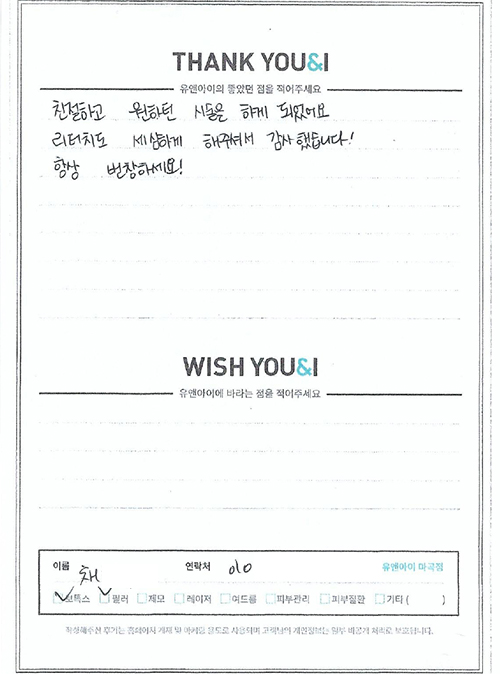 THANK YOU&I
유앤아이의 좋았던 점을 적어주세요
친절하고 원하던 시술을 하게 되었어요
리터치도 세심하게 해주셔서 감사했습니다!
항상 번창하세요!
WISH YOU&I
유앤아이에 바라는 점을 적어주세요
이름 채 연락처 010 유앤아이 마곡점
보톡스 필러 제모 레이저 여드름 피부관리 피부질환 기타 ( )
작성해주신 후기는 홈페이지 게재 및 마케팅 용도로 사용되며 고객님의 개인정보는 일부 비공개 처리로 보호됩니다.